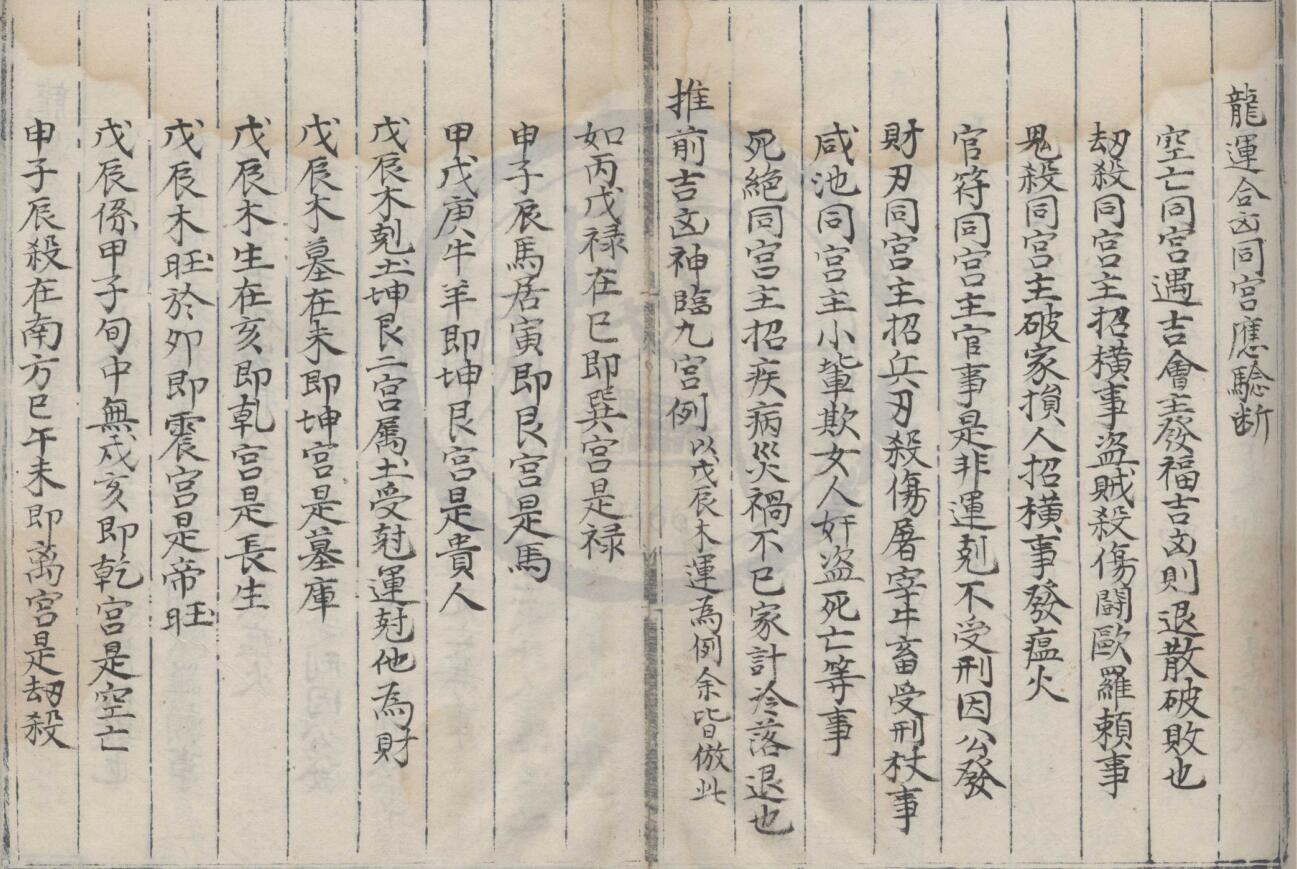 龍運合凶同宮應驗断
空亡同宮遇吉會主發福吉凶則退散破敗也
劫殺同宮主招横事盗賊殺傷鬪歐羅頼事
鬼殺同宮主破家損人招横事發瘟火
官符同宮主官事是非運剋不受刑因公發
財刃同宮主招兵刃殺傷屠宰牛畜受刑杖事
咸池同宮主小輩欺女人奸盗死亡等事
死絕同宮主招疾病災禍不已家計冷落退也
推前吉凶神臨九宮例以戊辰木運為例余皆倣此
如丙戊禄在巳即巽宮是禄
申子辰馬居寅即艮宮是馬
甲戊庚牛羊即坤艮宮是貴人
戊辰木剋土坤艮二宮属土受尅運尅他為財
戊辰木墓在未即坤宮是墓庫
戊辰木生在亥即乹宮是長生
戊辰木旺於夘即震宮是帝旺
戊辰係甲子旬中無戌亥即乾宮是空亡
申子辰殺在南方巳午未即离宮是劫殺